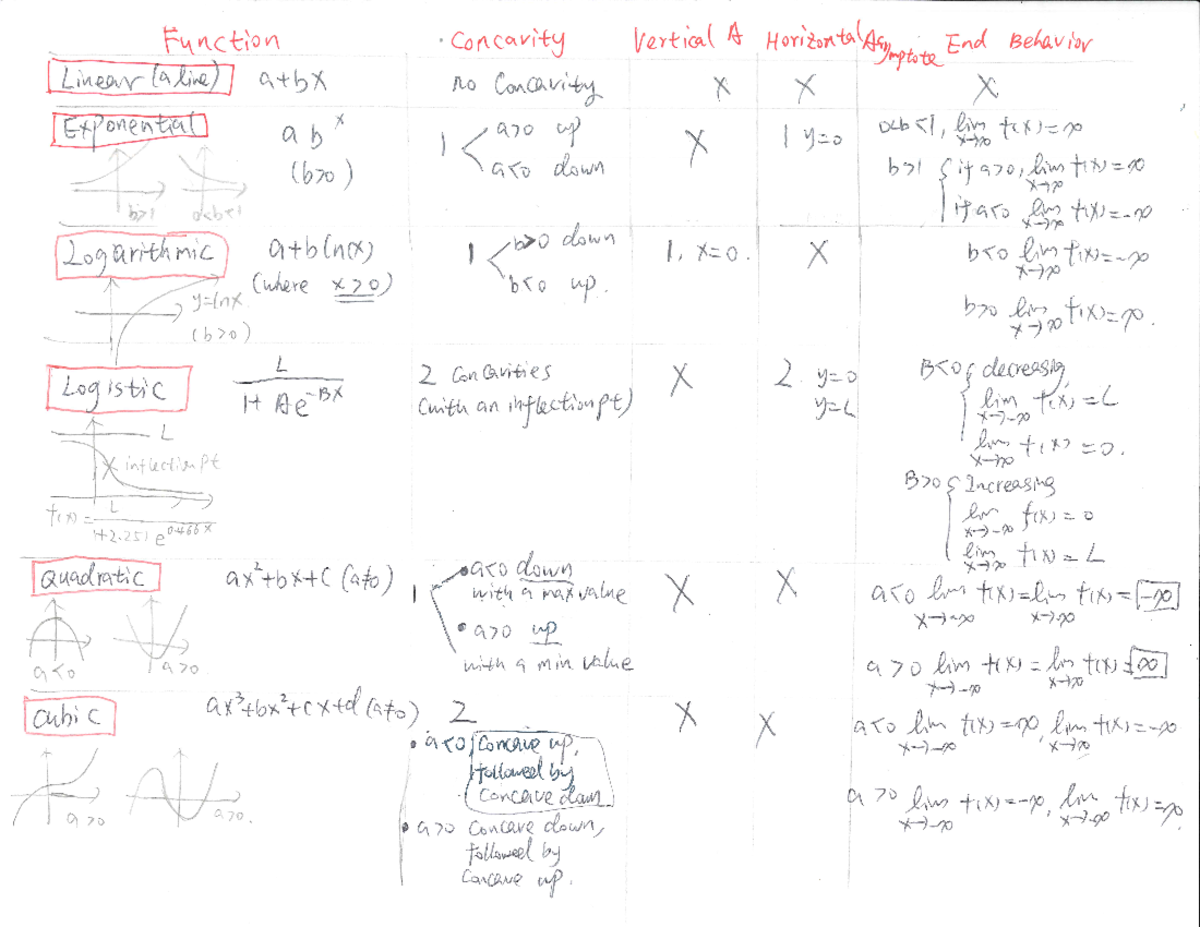 Function · Concavity Vertical A Horizontal Asymptote End Behavior
Linear (a line) a+bx no Concavity X X X
Exponential ab^x (b>0)
1 a>0 up
a<0 down
X 1 y=0
0<b<1, lim x→∞ f(x)=∞
b>1 { if a>0, lim x→∞ f(x)=∞
if a<0 lim x→∞ f(x)=-∞
b>1 0<b<1
Logarithmic a+b ln(x)
(where x>0)
1 b>0 down
b<0 up.
1, x=0. X
b<0 lim x→∞ f(x)=-∞
b>0 lim x→∞ f(x)=∞.
y=lnx
(b>0)
Logistic L / 1+Ae^-Bx
2 Concavities
(with an inflection pt)
X 2. y=0
y=L
B<0 { decreasing
lim x→-∞ f(x)=L
lim x→∞ f(x)=0.
B>0 { Increasing
lim x→-∞ f(x)=0
lim x→∞ f(x)=L
L
X inflection pt
f(x)= L / 1+2.251e^0.466x
Quadratic ax²+bx+c (a≠0)
1 • a<0 down
with a max value
• a>0 up
with a min value
X X
a<0 lim x→-∞ f(x)=lim x→∞ f(x)=-∞
a>0 lim x→-∞ f(x)=lim x→∞ f(x)=∞
a<0 a>0
Cubic ax³+bx²+cx+d (a≠0) 2
• a<0 Concave up,
followed by
concave down
• a>0 Concave down,
followed by
Concave up.
X X
a<0 lim x→-∞ f(x)=∞, lim x→∞ f(x)=-∞
a>0 lim x→-∞ f(x)=-∞, lim x→∞ f(x)=∞.
a>0 a>0.